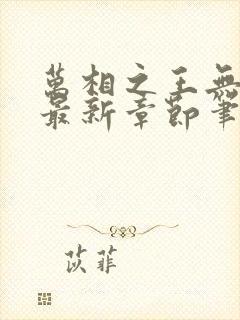 萬相之王無
最新章節筆
苡菲